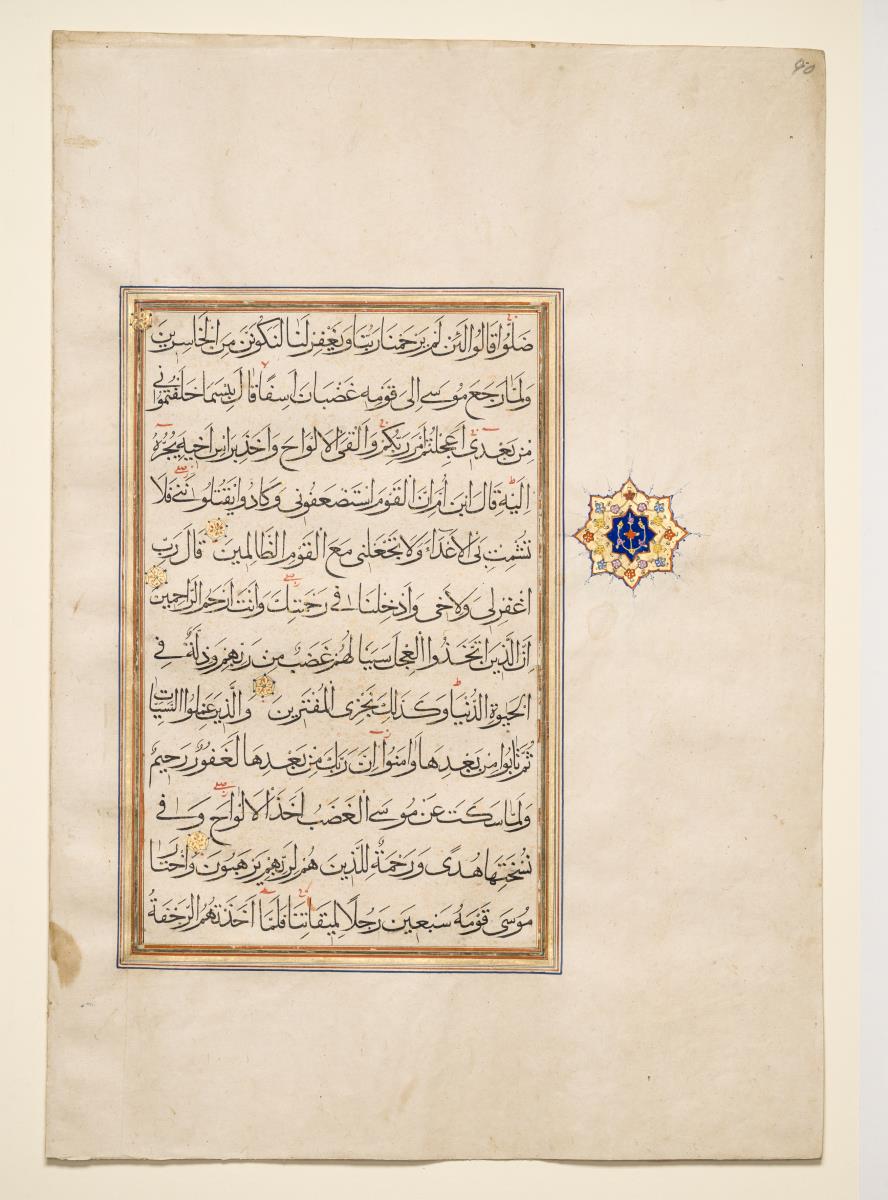 ضلوا قالوا لئن لم يرحمنا ربنا ويغفر لنا لنكونن من الخاسرين
ولما رجع موسى الى قومه غضبان اسفا قال بئسما خلفتموني
من بعدى اعجلتم امر ربكم والقى الالواح واخذ براس اخيه يجره
اليه قال ابن ام ان القوم استضعفونى وكادوا يقتلوننى فلا
تشمت بى الاعداء ولا تجعلنى مع القوم الظالمين قال رب
اغفر لى ولاخى وادخلنا فى رحمتك وانت ارحم الراحمين
ان الذين اتخذوا العجل سينالهم غضب من ربهم وذلة فى
الحيوة الدنيا وكذلك نجزى المفترين والذين عملوا السيئات
ثم تابوا من بعدها وامنوا ان ربك من بعدها لغفور رحيم
ولما سكت عن موسى الغضب اخذ الالواح وفى
نسختها هدى ورحمة للذين هم لربهم يرهبون واختار
موسى قومه سبعين رجلا لميقاتنا فلما اخذتهم الرجفة